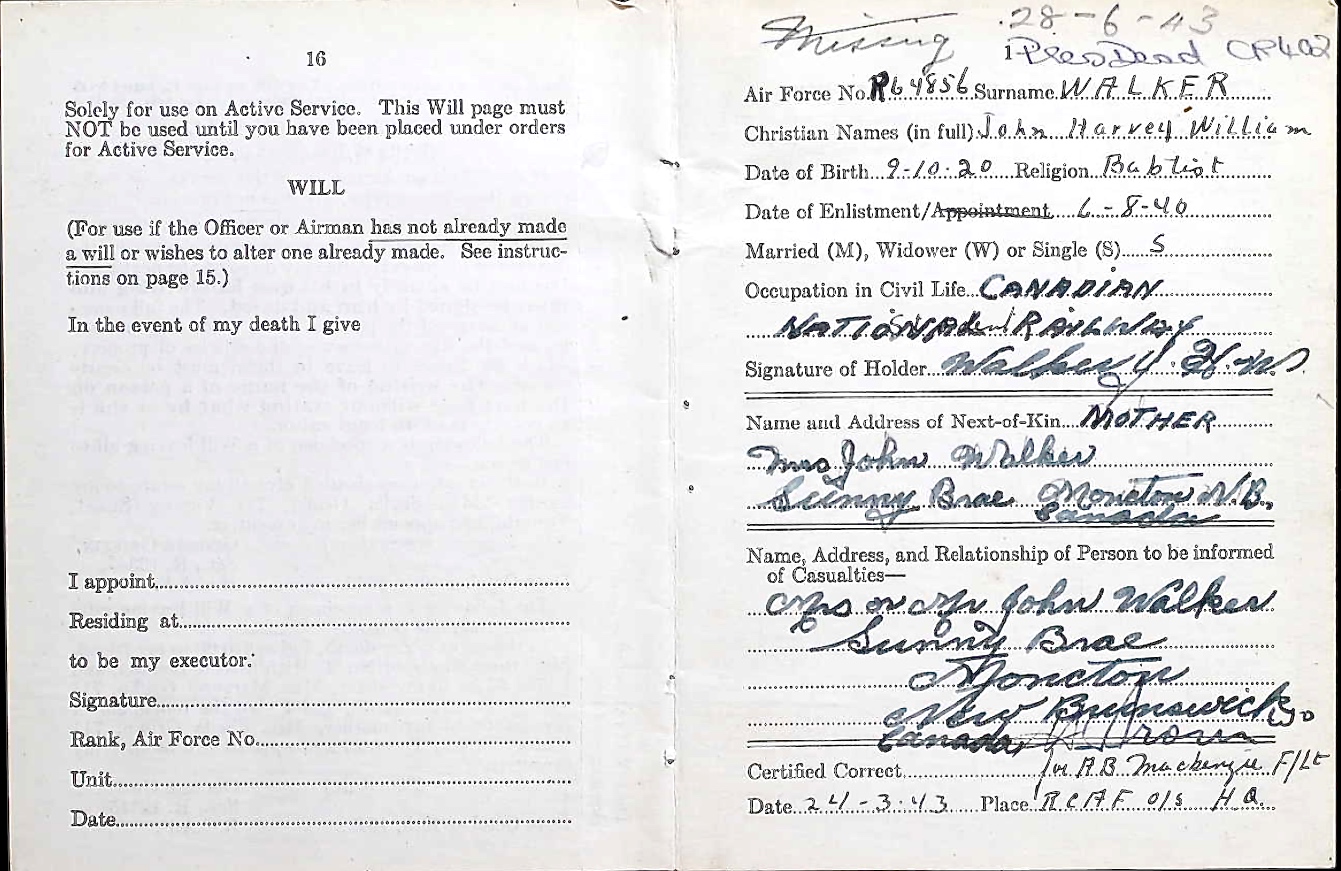 16
Solely for use on Active Service. This Will page must
NOT be used until you have been placed under orders
for Active Service.
WILL
(For use if the Officer or Airman has not already made
a will or wishes to alter one already made. See instruc-
tions on page 15.)
In the event of my death I give
I appoint
Residing at
to be my executor.
Signature
Rank, Air Force No.
Unit
Date
Missing 28-6-43
Pres Dead CP402
Air Force No. R64856 Surname WALKER
Christian Names (in full) John Harvey William
Date of Birth 9-10-20 Religion Babtist
Date of Enlistment/Appointment 6-8-40
Married (M), Widower (W) or Single (S) S
Occupation in Civil Life CANADIAN
NATIONAL RAILWAY
Signature of Holder Walker J. H. W.
Name and Address of Next-of-Kin MOTHER
Mrs John Walker
Sunny Brae Moncton N.B.,
Canada
Name, Address, and Relationship of Person to be informed
of Casualties—
Mrs or Mr John Walker
Sunny Brae
Moncton
New Brunswick
Canada
Certified Correct for A.B. Mackenzie F/Lt
Date 24-3-43 Place R.C.A.F. o/s H.Q.